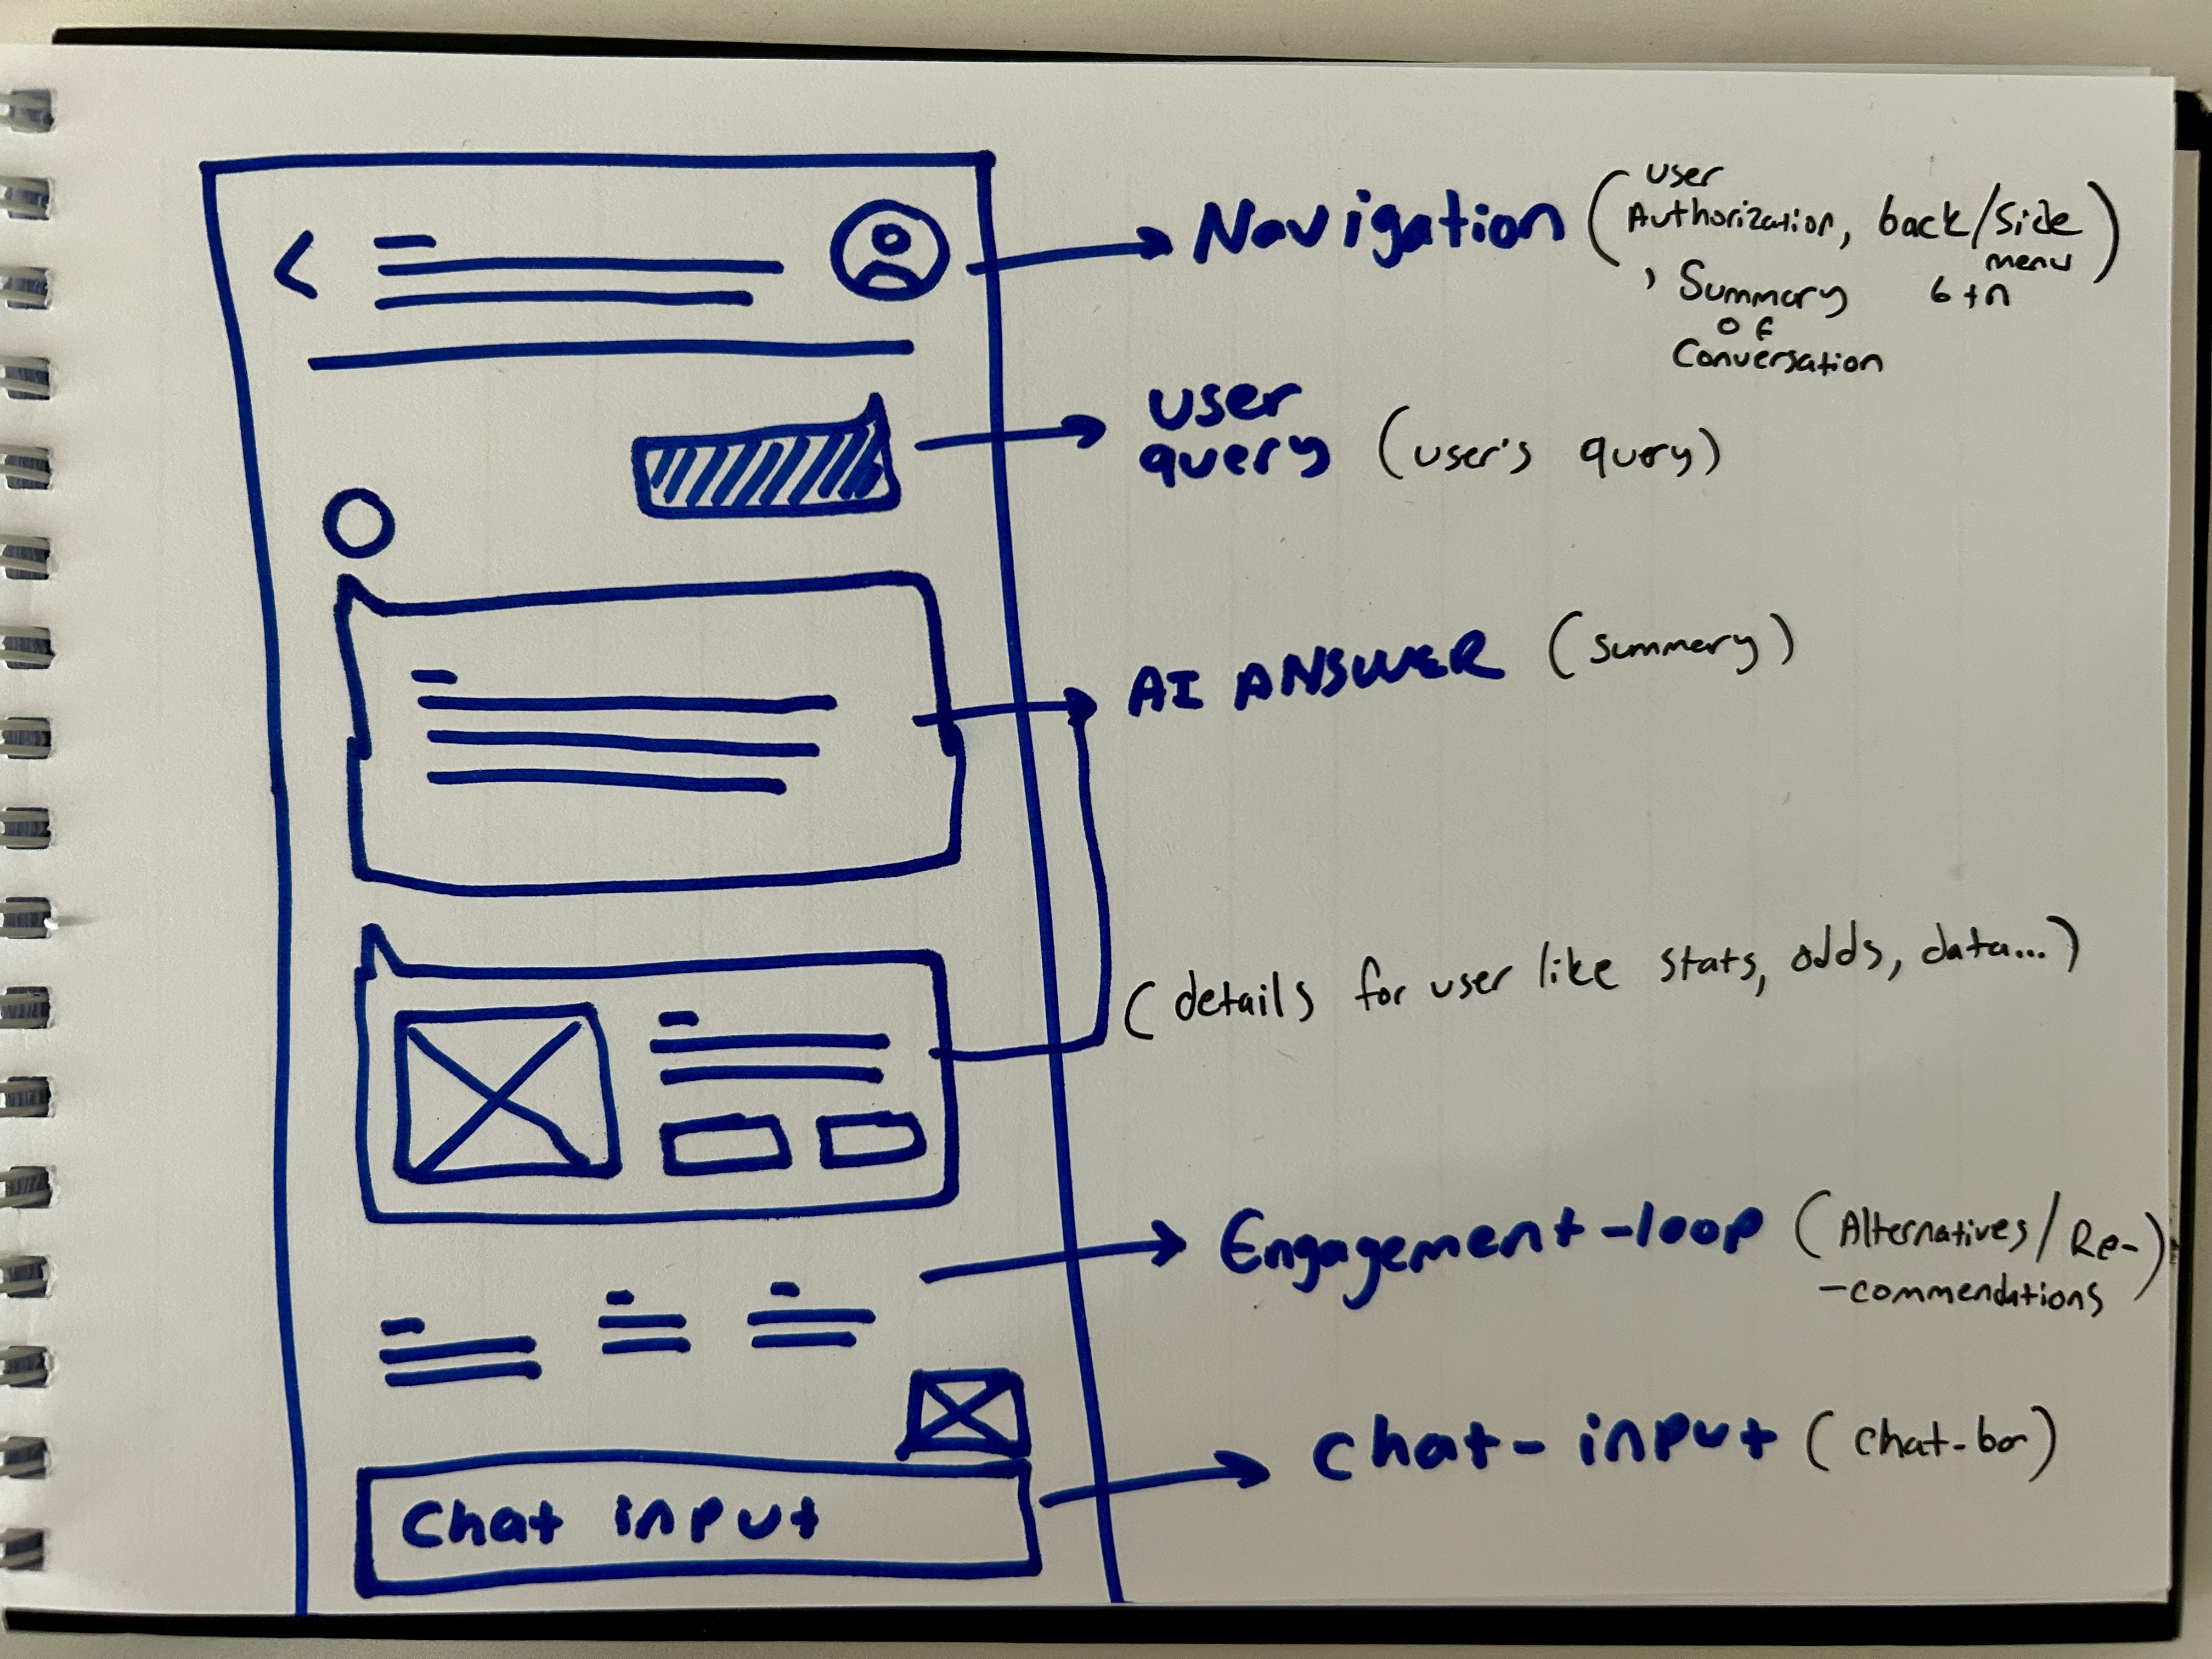 Navigation (User
Authorization, back/side
menu
btn)
, Summary
of
Conversation
user
query (user's query)
AI ANSWER (summary)
(details for user like stats, odds, data...)
Engagement-loop (Alternatives/Re-
-commendations)
Chat-input (chat-bar)
Chat input